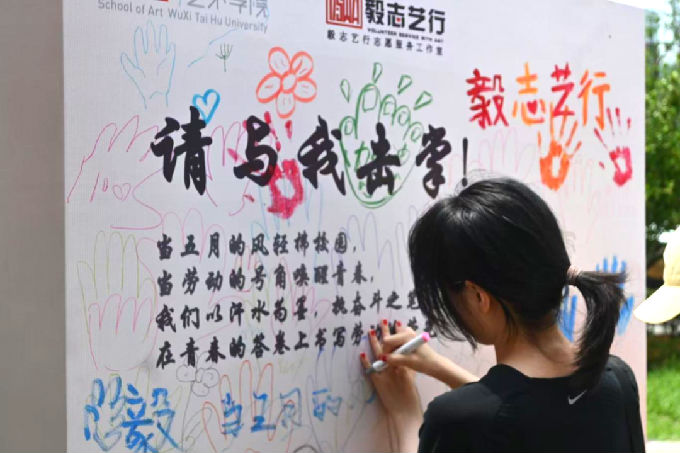 艺术学院
School of Art WuXi Tai Hu University
毅志艺行
VOLUNTEER SERVICE WITH ART
毅志艺行志愿服务工作室
毅志艺行
请与我击掌!
当五月的风轻拂校园,
当劳动的号角唤醒青春,
我们以汗水为墨,执奋斗之笔
在青春的答卷上书写劳
毅
当五月的